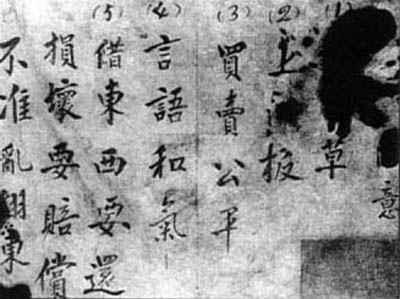 意
(1) 草
(2) 上板
(3) 買賣公平
(4) 言語和氣
(5) 借東西要還
損壞要賠償
不准亂東